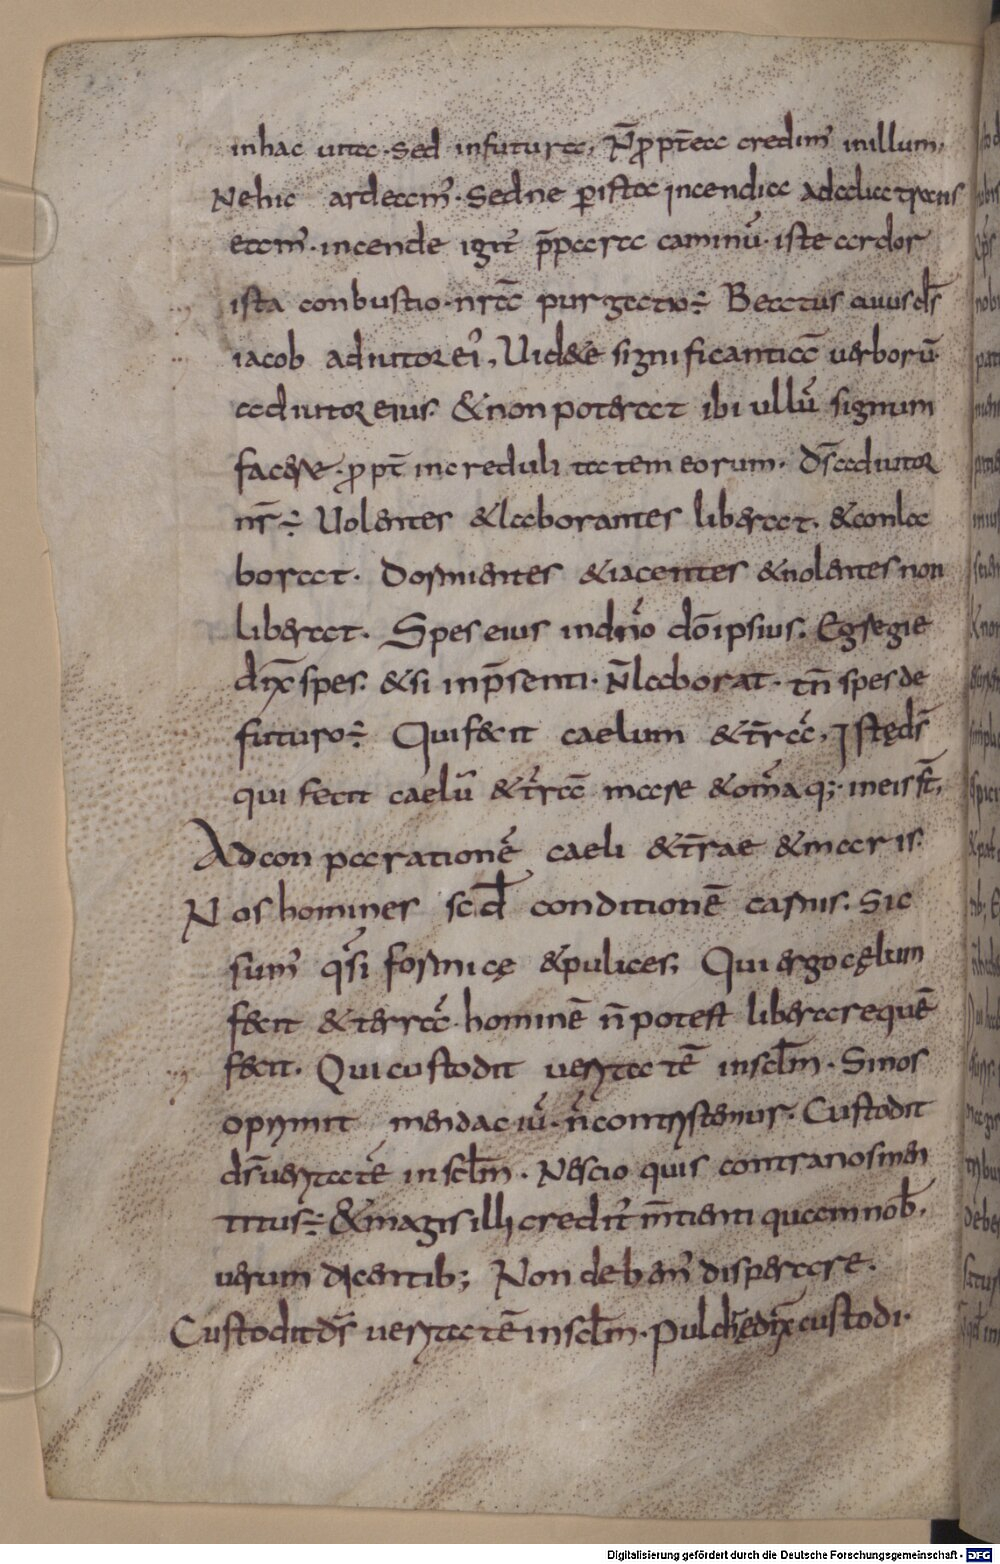 inhac uita. sed infutura, N̄ ꝓpt̄ea credim᾽ inillum,
Nehic ardeam᾽. Sedne ꝑista incendia adalia trans
eam᾽. incende igit᾽ p̄para caminū. iste ardor
ista conbustio. nr̄a purgatio᎓ Beatus cuiusds̄
iacob adiutor ei᾽, Uid&e significantiā uerborū
adiutor eius. &non poterat ibi ullū signum
facere. ꝓpt̄ increduli tatem eorum. Ds̄ adiutor
nr̄᎓ Uolentes &laborantes liberat. &conla
borat. Dormientes &iacentes &nolentes non
liberat. Spes eius indn̄o dō ipsius. Egregie
dix̄ spes. &si inp̄senti. n̄laborat. tn̄ spes de
futuro᎓ Qui fecit caelum &t̄rā, Istęds̄
qui fecit caelū &t̄rā mare &om̄aq; ineis s̄t,
Adcon parationē caeli &t̄rae &maris.
Nos homines scd̄ conditionē carnis. Sic
sum᾽ q̄si formicę &pulices, Qui ergo cęlum
fecit &terrā. hominē n̄potest liberarequē
fecit. Qui custodit uerita tē insc̄lm. Sinos
opprimit mendaciū. n̄contristemur. Custodit
ds̄ueritatē insc̄lm. Nescio quis contranosmen
titus᎓ &magis illi credit᾽ m̄tienti quamnob̄.
uerum dicentib; Non debem᾽ disperare.
Custoditds̄ ueritatē insc̄lm. pulchrędix̄ custodi.
Digitalisierung gefördert durch die Deutsche Forschungsgemeinschaft - DFG